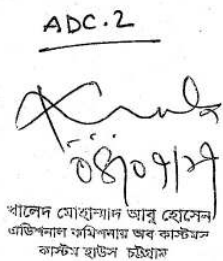 ADC.2
খালেদ মোহাম্মাদ আবু হোসেন
এডিশনাল কমিশনার অব কাস্টমস
কাস্টম হাউস চট্টগ্রাম